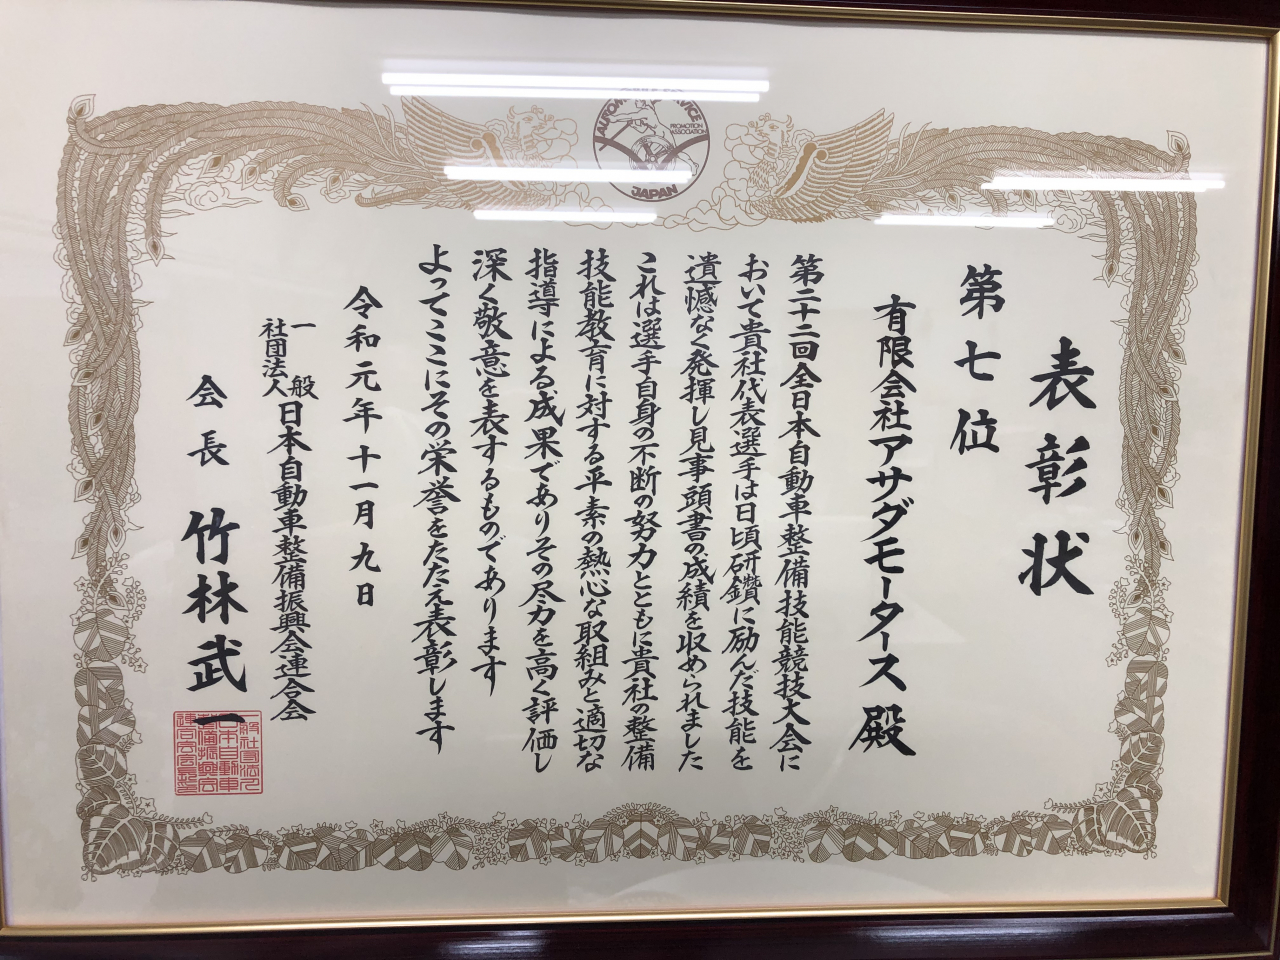 AUTOMO SERVICE
PROMOTION
ASSOCIATION
JAPAN
表彰状
第七位
有限会社アサダモータース殿
第二十二回全日本自動車整備技能競技大会に
おいて貴社代表選手は日頃研鑽に励んだ技能を
遺憾なく発揮し見事頭書の成績を収められました
これは選手自身の不断の努力とともに貴社の整備
技能教育に対する平素の熱心な取組みと適切な
指導による成果でありその尽力を高く評価し
深く敬意を表するものであります
よってここにその栄誉をたたえ表彰します
令和元年十一月九日
一般社団法人日本自動車整備振興会連合会
会長 竹林武一